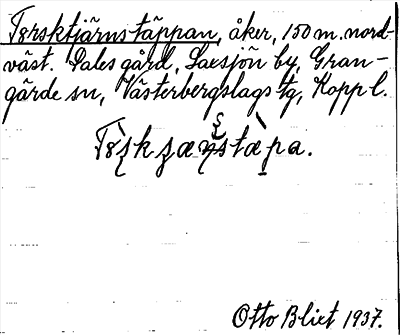 Torsktjärnstäppan, åker, 150 m. nord-
väst. Pales gård, Saxsjön by, Gran-
gärde sn, Västerbergslags tg, Kopp l.
Otto Blixt 1937.